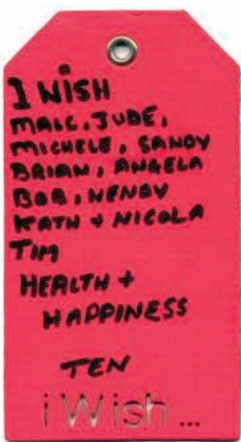 I WISH
MALC, JUDE,
MICHELE, SANDY
BRIAN, ANGELA
BOB, WENDY
KATH + NICOLA
TIM
HEALTH +
HAPPINESS
TEN
i Wish...